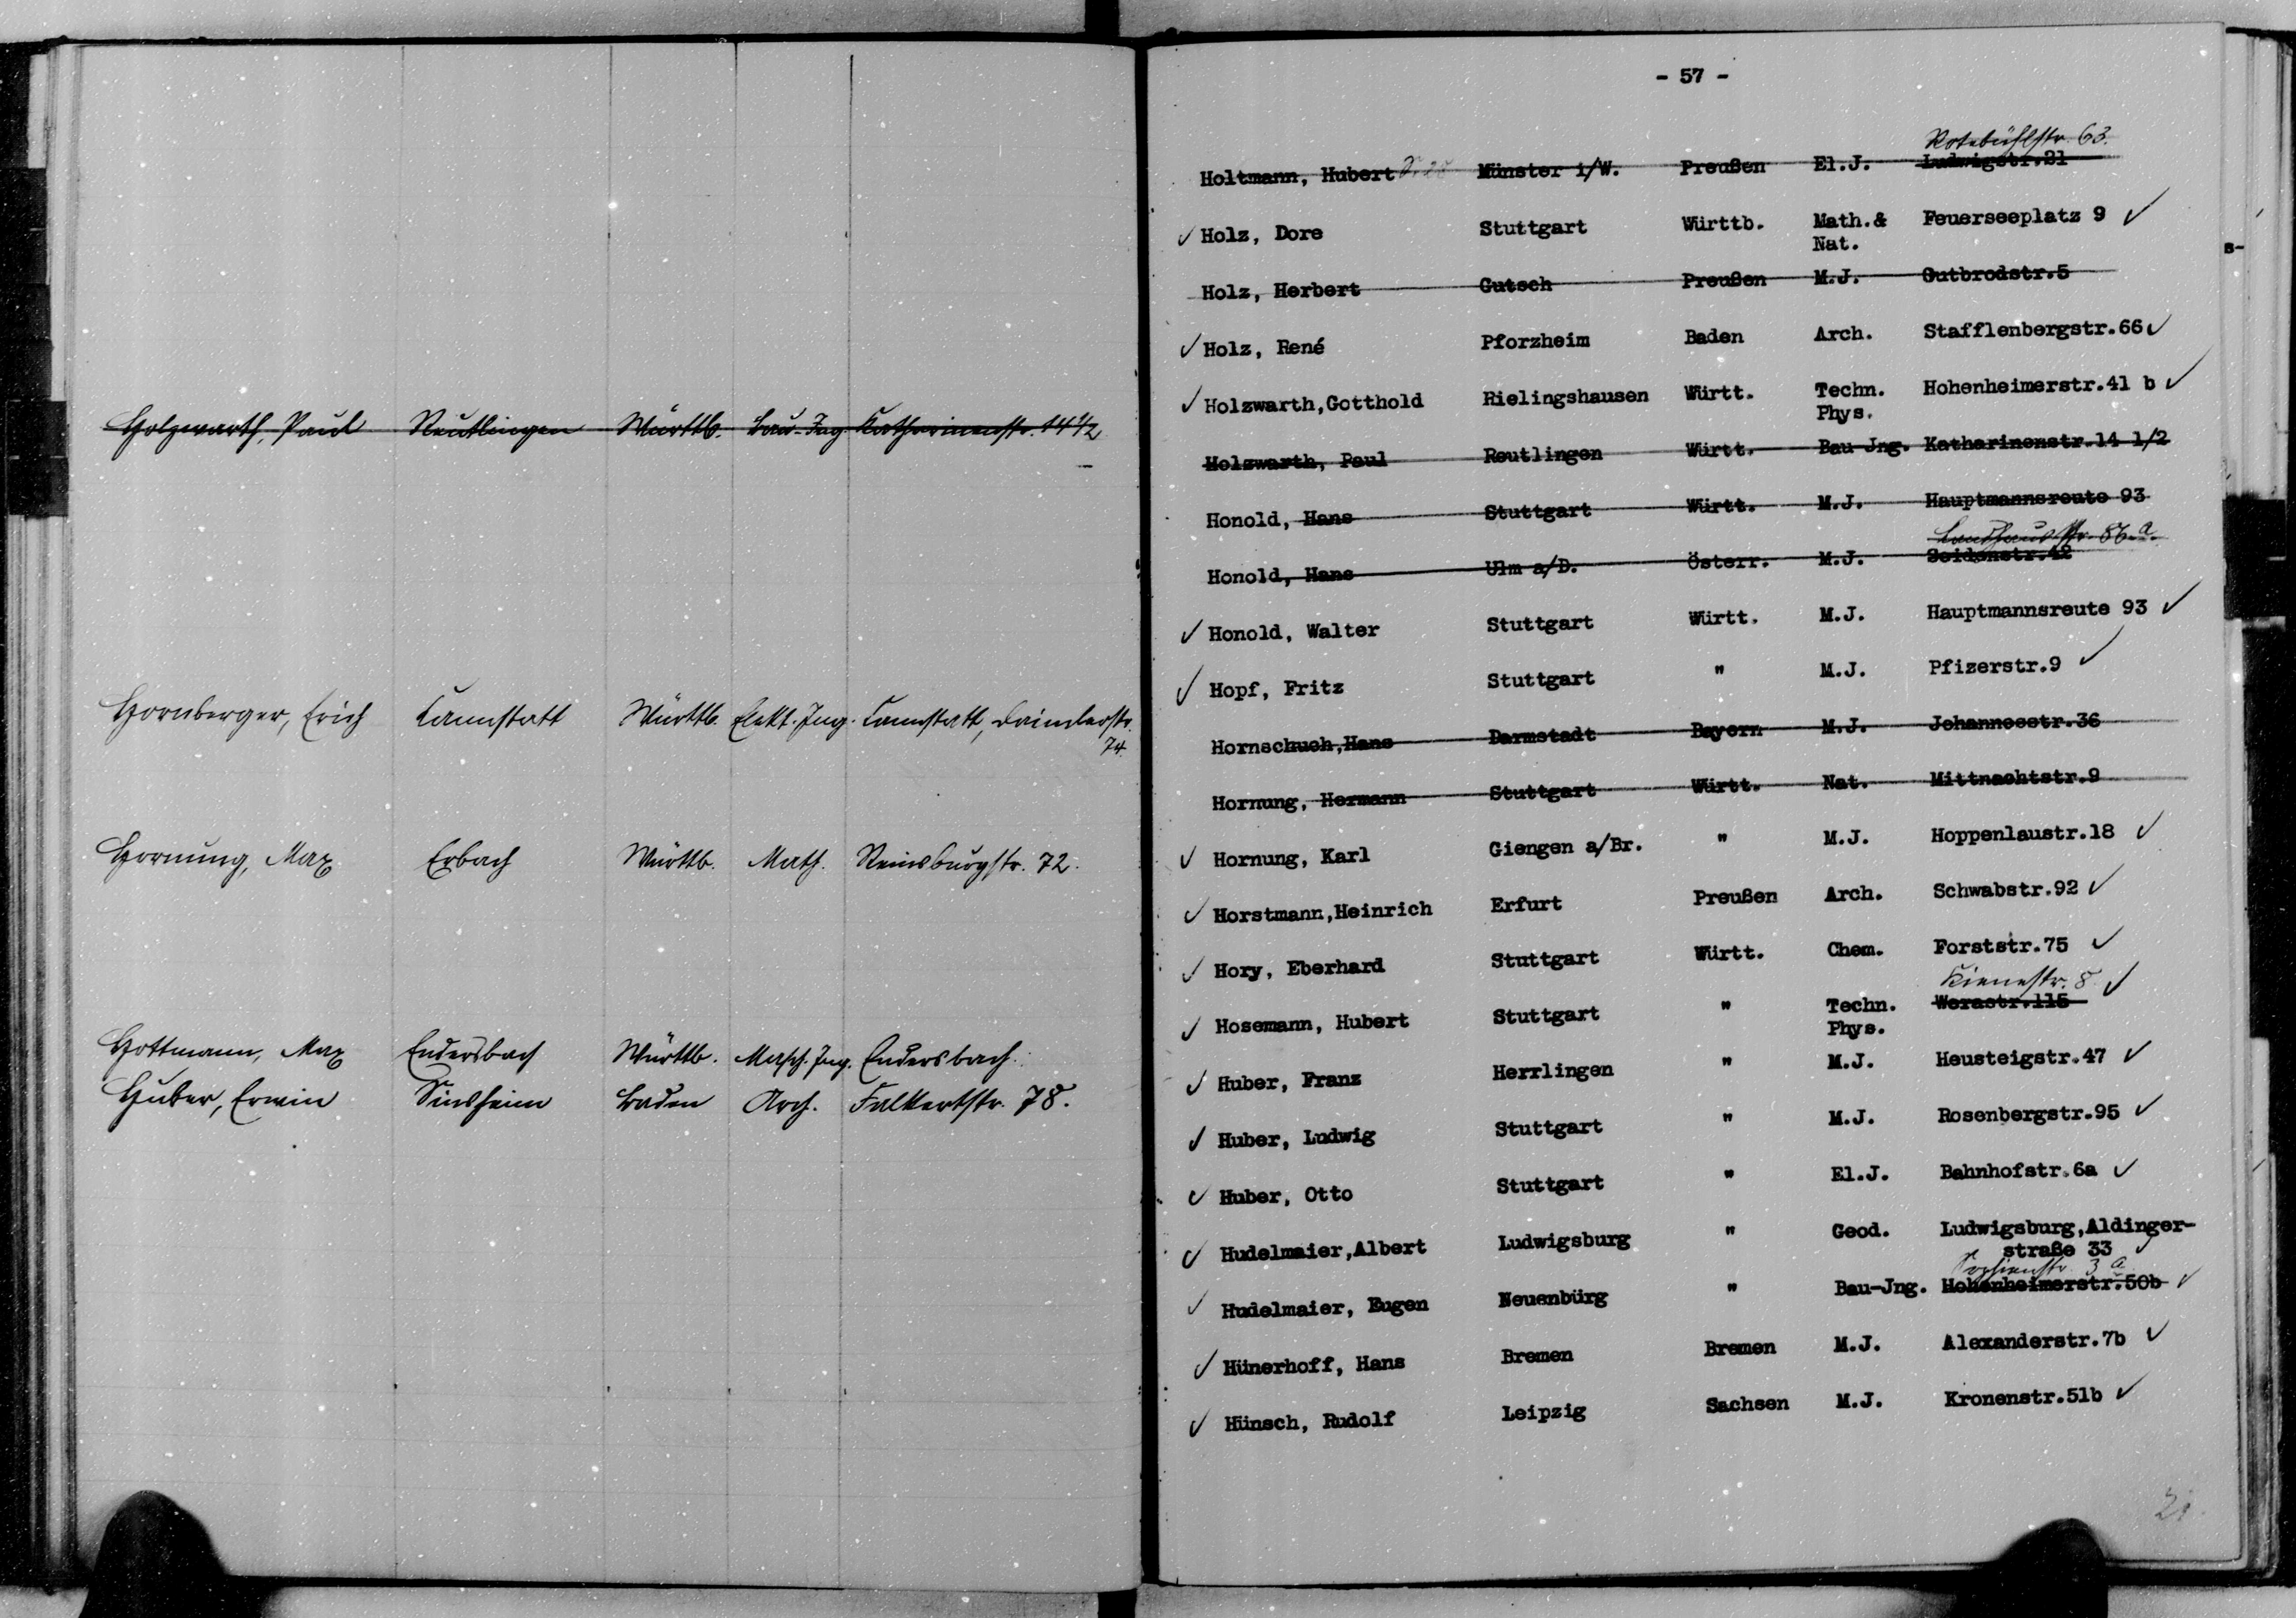 Holzwarth, Paul Reutlingen Württb. Bau-Ing. Katharinenstr. 14 1/2
Hornberger, Erich Cannstatt Württb. Elekt. Ing. Cannstatt, Daimlerstr.
74.
Hornung, Max Erbach Württb. Math. Reinsburgstr. 72.
Hottmann, Max Endersbach Württb. Masch. Ing. Endersbach.
Huber, Erwin Sinsheim Baden Arch. Falkertstr. 78.
- 57 -
Rotebühlstr. 63.
Holtmann, Hubert Münster i/W. Preußen El.J. Ludwigstr.21
Holz, Dore Stuttgart Württb. Math.& Feuerseeplatz 9 ✓
Nat.
Holz, Herbert Gutsch Preußen M.J. Gutbrodstr.5
✓ Holz, René Pforzheim Baden Arch. Stafflenbergstr.66 ✓
✓ Holzwarth,Gotthold Rielingshausen Württ. Techn. Hohenheimerstr.41 b ✓
Phys.
Holzwarth, Paul Reutlingen Württ. Bau Jng. Katharinenstr.14 1/2
Honold, Hans Stuttgart Württ. M.J. Hauptmannsreute 93
Landhausstr. 86 a.
Honold, Hans Ulm a/D. Österr. M.J. Seidenstr.42
✓ Honold, Walter Stuttgart Württ. M.J. Hauptmannsreute 93 ✓
✓ Hopf, Fritz Stuttgart " M.J. Pfizerstr.9 ✓
Hornschuch,Hans Darmstadt Bayern M.J. Johannesstr.36
Hornung, Hermann Stuttgart Württ. Nat. Mittnachtstr.9
✓ Hornung, Karl Giengen a/Br. " M.J. Hoppenlaustr.18 ✓
✓ Horstmann,Heinrich Erfurt Preußen Arch. Schwabstr.92 ✓
✓ Hory, Eberhard Stuttgart Württ. Chem. Forststr.75 ✓
Kienestr. 8 ✓
✓ Hosemann, Hubert Stuttgart " Techn. Werastr.115
Phys.
✓ Huber, Franz Herrlingen " M.J. Heusteigstr.47 ✓
✓ Huber, Ludwig Stuttgart " M.J. Rosenbergstr.95 ✓
✓ Huber, Otto Stuttgart " El.J. Bahnhofstr.6a ✓
✓ Hudelmaier,Albert Ludwigsburg " Geod. Ludwigsburg,Aldinger-
straße 33 ✓
Sophienstr. 3 a
✓ Hudelmaier, Eugen Neuenbürg " Bau-Jng. Hohenheimerstr.50b ✓
✓ Hünerhoff, Hans Bremen Bremen M.J. Alexanderstr.7b ✓
✓ Hünsch, Rudolf Leipzig Sachsen M.J. Kronenstr.51b ✓
s-